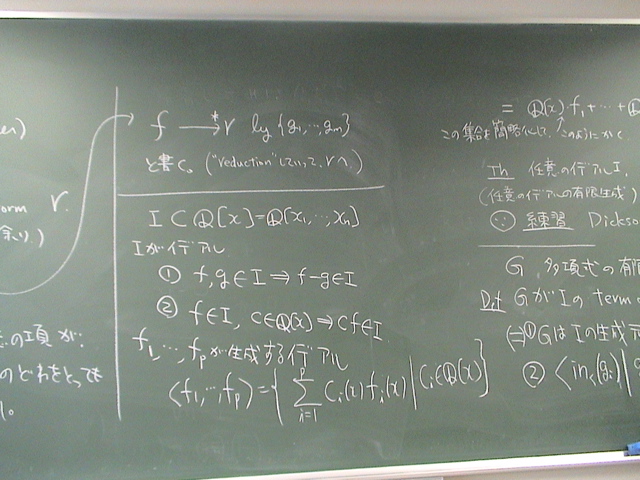 orm r.
余り)
の項が
のどれをとっても
f →* r by {g₁,…,gₙ}
と書く。("reduction" していって、rへ)
I ⊂ Q[x] = Q[x₁,…,xₙ]
Iがイデアル
① f, g ∈ I ⇒ f-g ∈ I
② f ∈ I, c ∈ Q[x] ⇒ cf ∈ I
f₁,…,fₚが生成するイデアル
⟨f₁,…,fₚ⟩ = { Σᵢ₌₁ᵖ Cᵢ(x) fᵢ(x) | Cᵢ ∈ Q[x] }
= Q[x]·f₁+…+Q
この集合を簡略化して、このようにかく
Th 任意のイデアル I,
(任意のイデアルの有限生成)
∵ 練習 Dickso
G, 多項式の有限
Def GがIの term o
⇔ ① GはIの生成
② ⟨in<(gᵢ) |